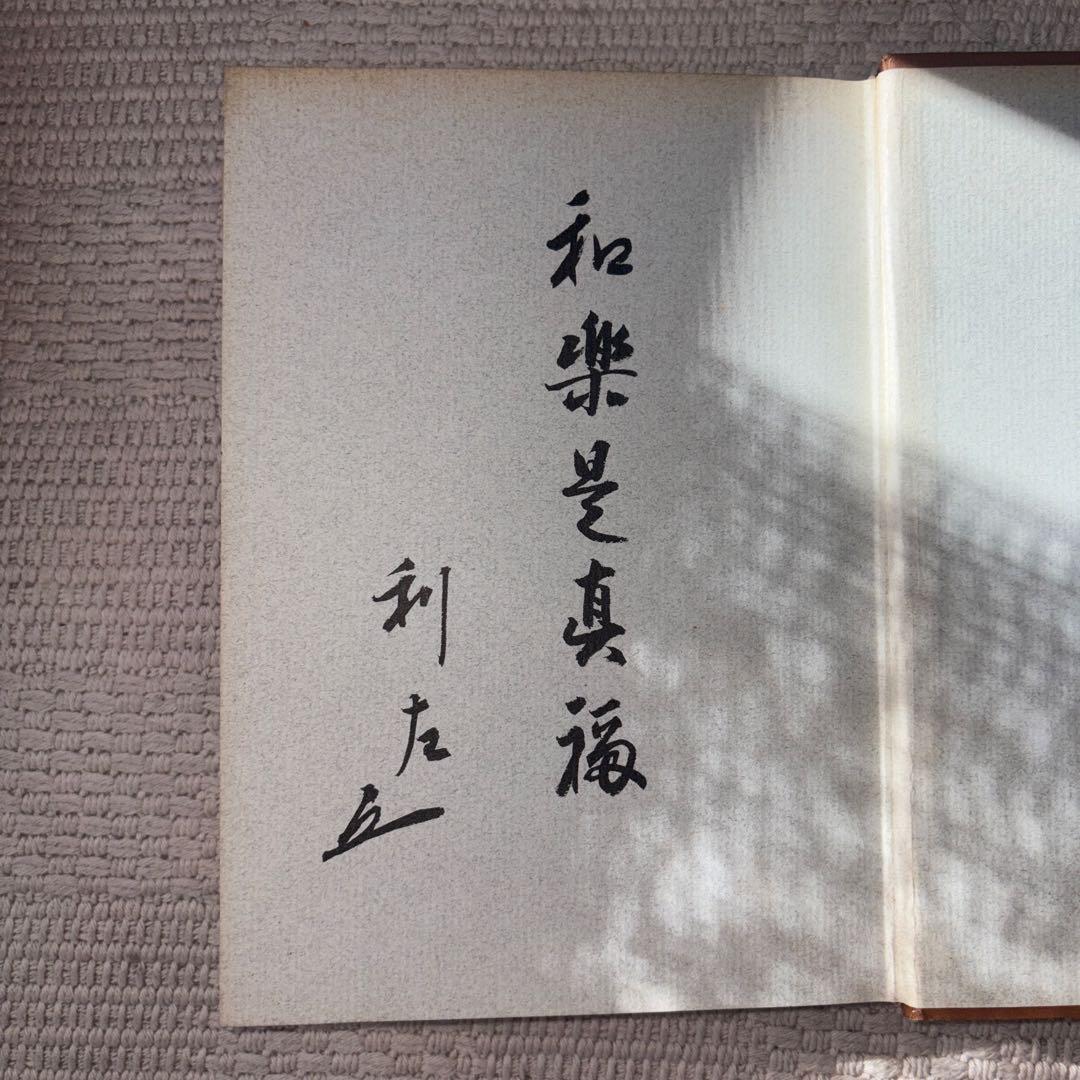 和樂是真福
利左五